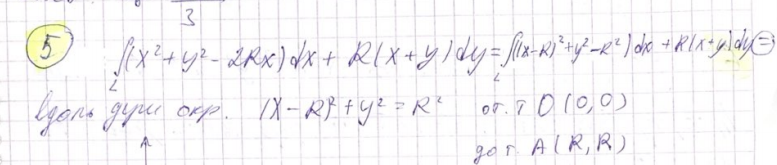 3
5
∫(x²+y²-2Rx)dx + R(x+y)dy = ∫((x-R)²+y²-R²)dx + R(x+y)dy =
L L
вдоль дуги окр. (x-R)²+y²=R² от т O(0,0)
до т. A(R,R)